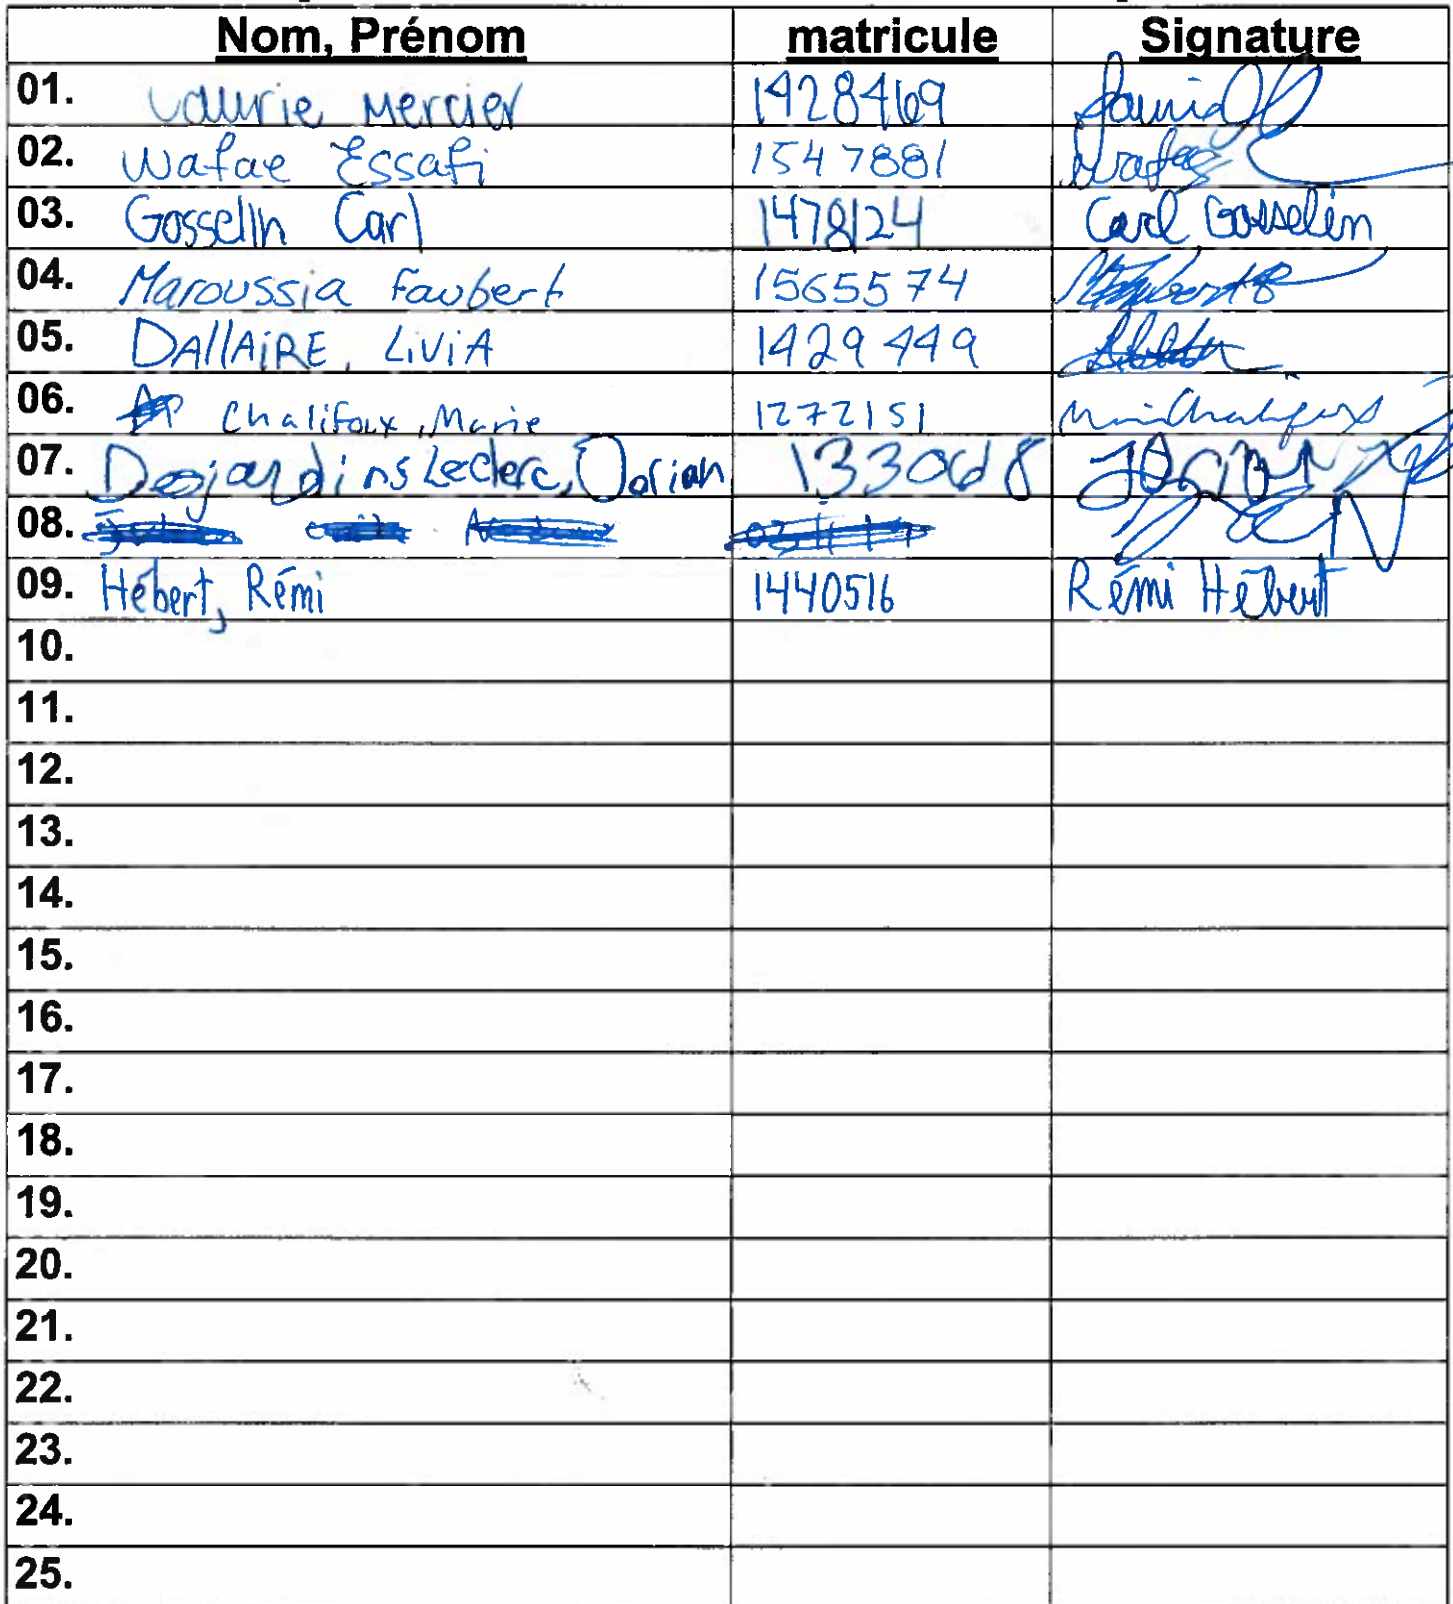 Nom, Prénom matricule Signature
01. Laurie Mercier 1428469
02. Wafae Essafi 1547881 Wafae
03. Gosselin Carl 1478124 Carl Gosselin
04. Maroussia Faubert 1565574
05. DALLAIRE, LiViA 1429449
06. Chalifoux, Marie 1272151
07. Desjardins Leclerc, Dorian 1330668
08.
09. Hébert, Rémi 1440516 Rémi Hébert
10.
11.
12.
13.
14.
15.
16.
17.
18.
19.
20.
21.
22.
23.
24.
25.